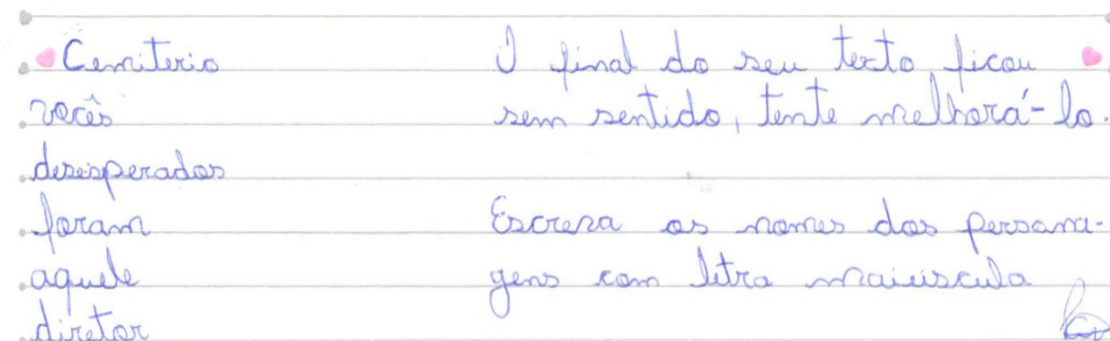 Cemiterio
vocês
desesperados
foram
aquele
diretor
O final do seu texto ficou
sem sentido, tente melhorá-lo.
Escreva os nomes dos persona-
gens com letra maiúscula